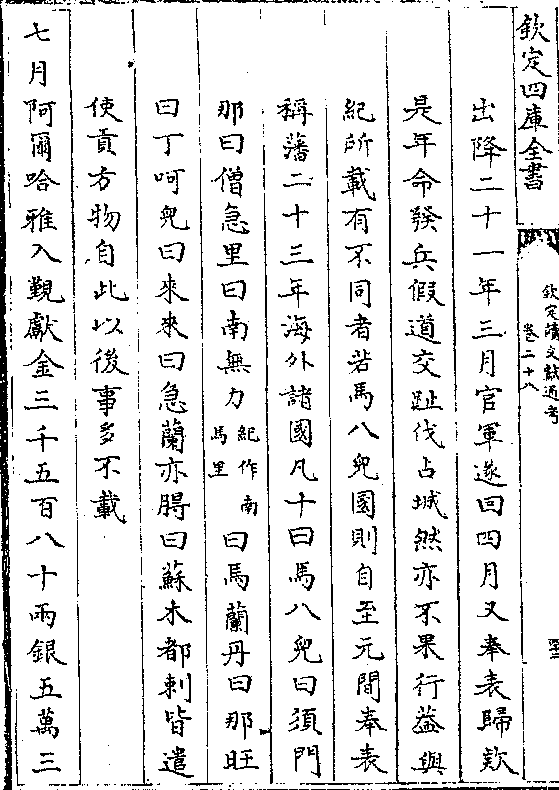 欽定四庫全書
欽定續文獻通考
卷二十八
出降二十一年三月官軍遂回四月又奉表歸欵
是年命發兵假道交趾伐占城然亦不果行益與
紀所載有不同者若馬八兒國則自至元間奉表
稱藩二十三年海外諸國凡十曰馬八兒曰須門
那曰僧急里曰南無力紀作南馬里曰馬蘭丹曰那旺
曰丁呵兒曰來來曰急蘭亦䚟曰蘇木都剌皆遣
使貢方物自此以後事多不載
七月阿爾哈雅入覲獻金三千五百八十兩銀五萬三